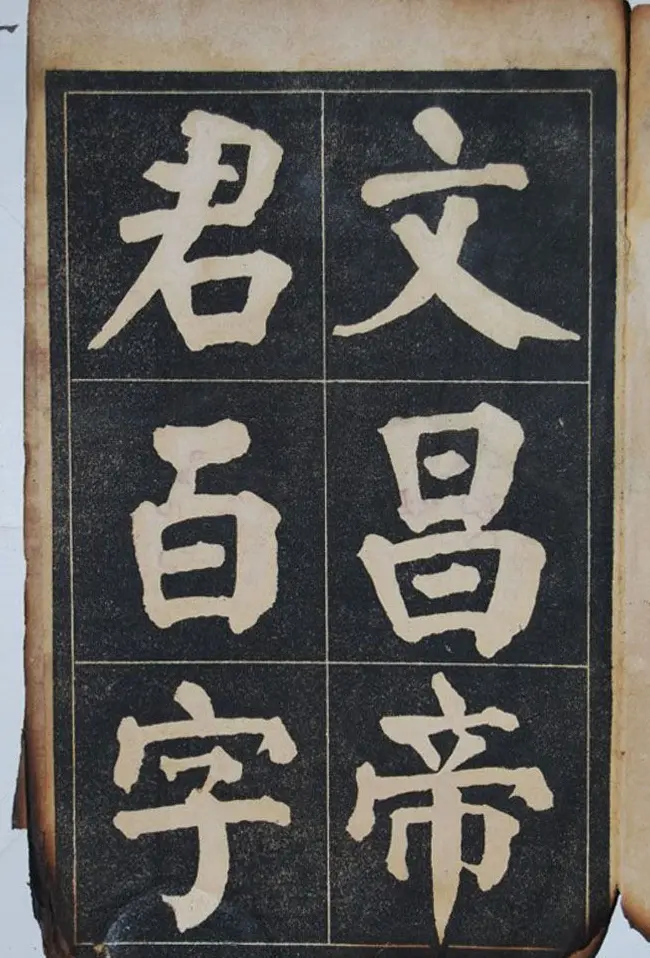 文昌帝
君百字